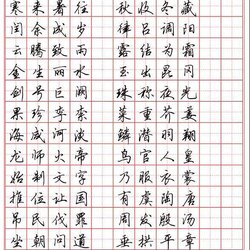 寒来暑往 秋收冬藏
闰余成岁 律吕调阳
云腾致雨 露结为霜
金生丽水 玉出昆冈
剑号巨阙 珠称夜光
果珍李柰 菜重芥姜
海咸河淡 鳞潜羽翔
龙师火帝 鸟官人皇
始制文字 乃服衣裳
推位让国 有虞陶唐
吊民伐罪 周发殷汤
坐朝问道 垂拱平章